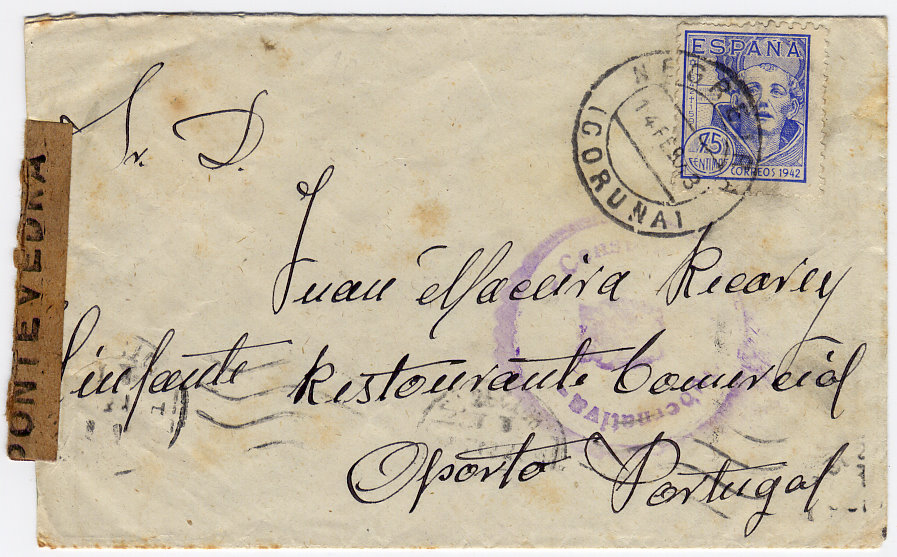 ESPAÑA
75
CENTIMOS
CORREOS 1942
NEGREIRA
14 FEB 43
(CORUÑA)
PONTEVEDRA
Sr. D.
Juan Maceira Recarey
Restourante Comercial
Oporto Portugal
Censura
Gubernativa